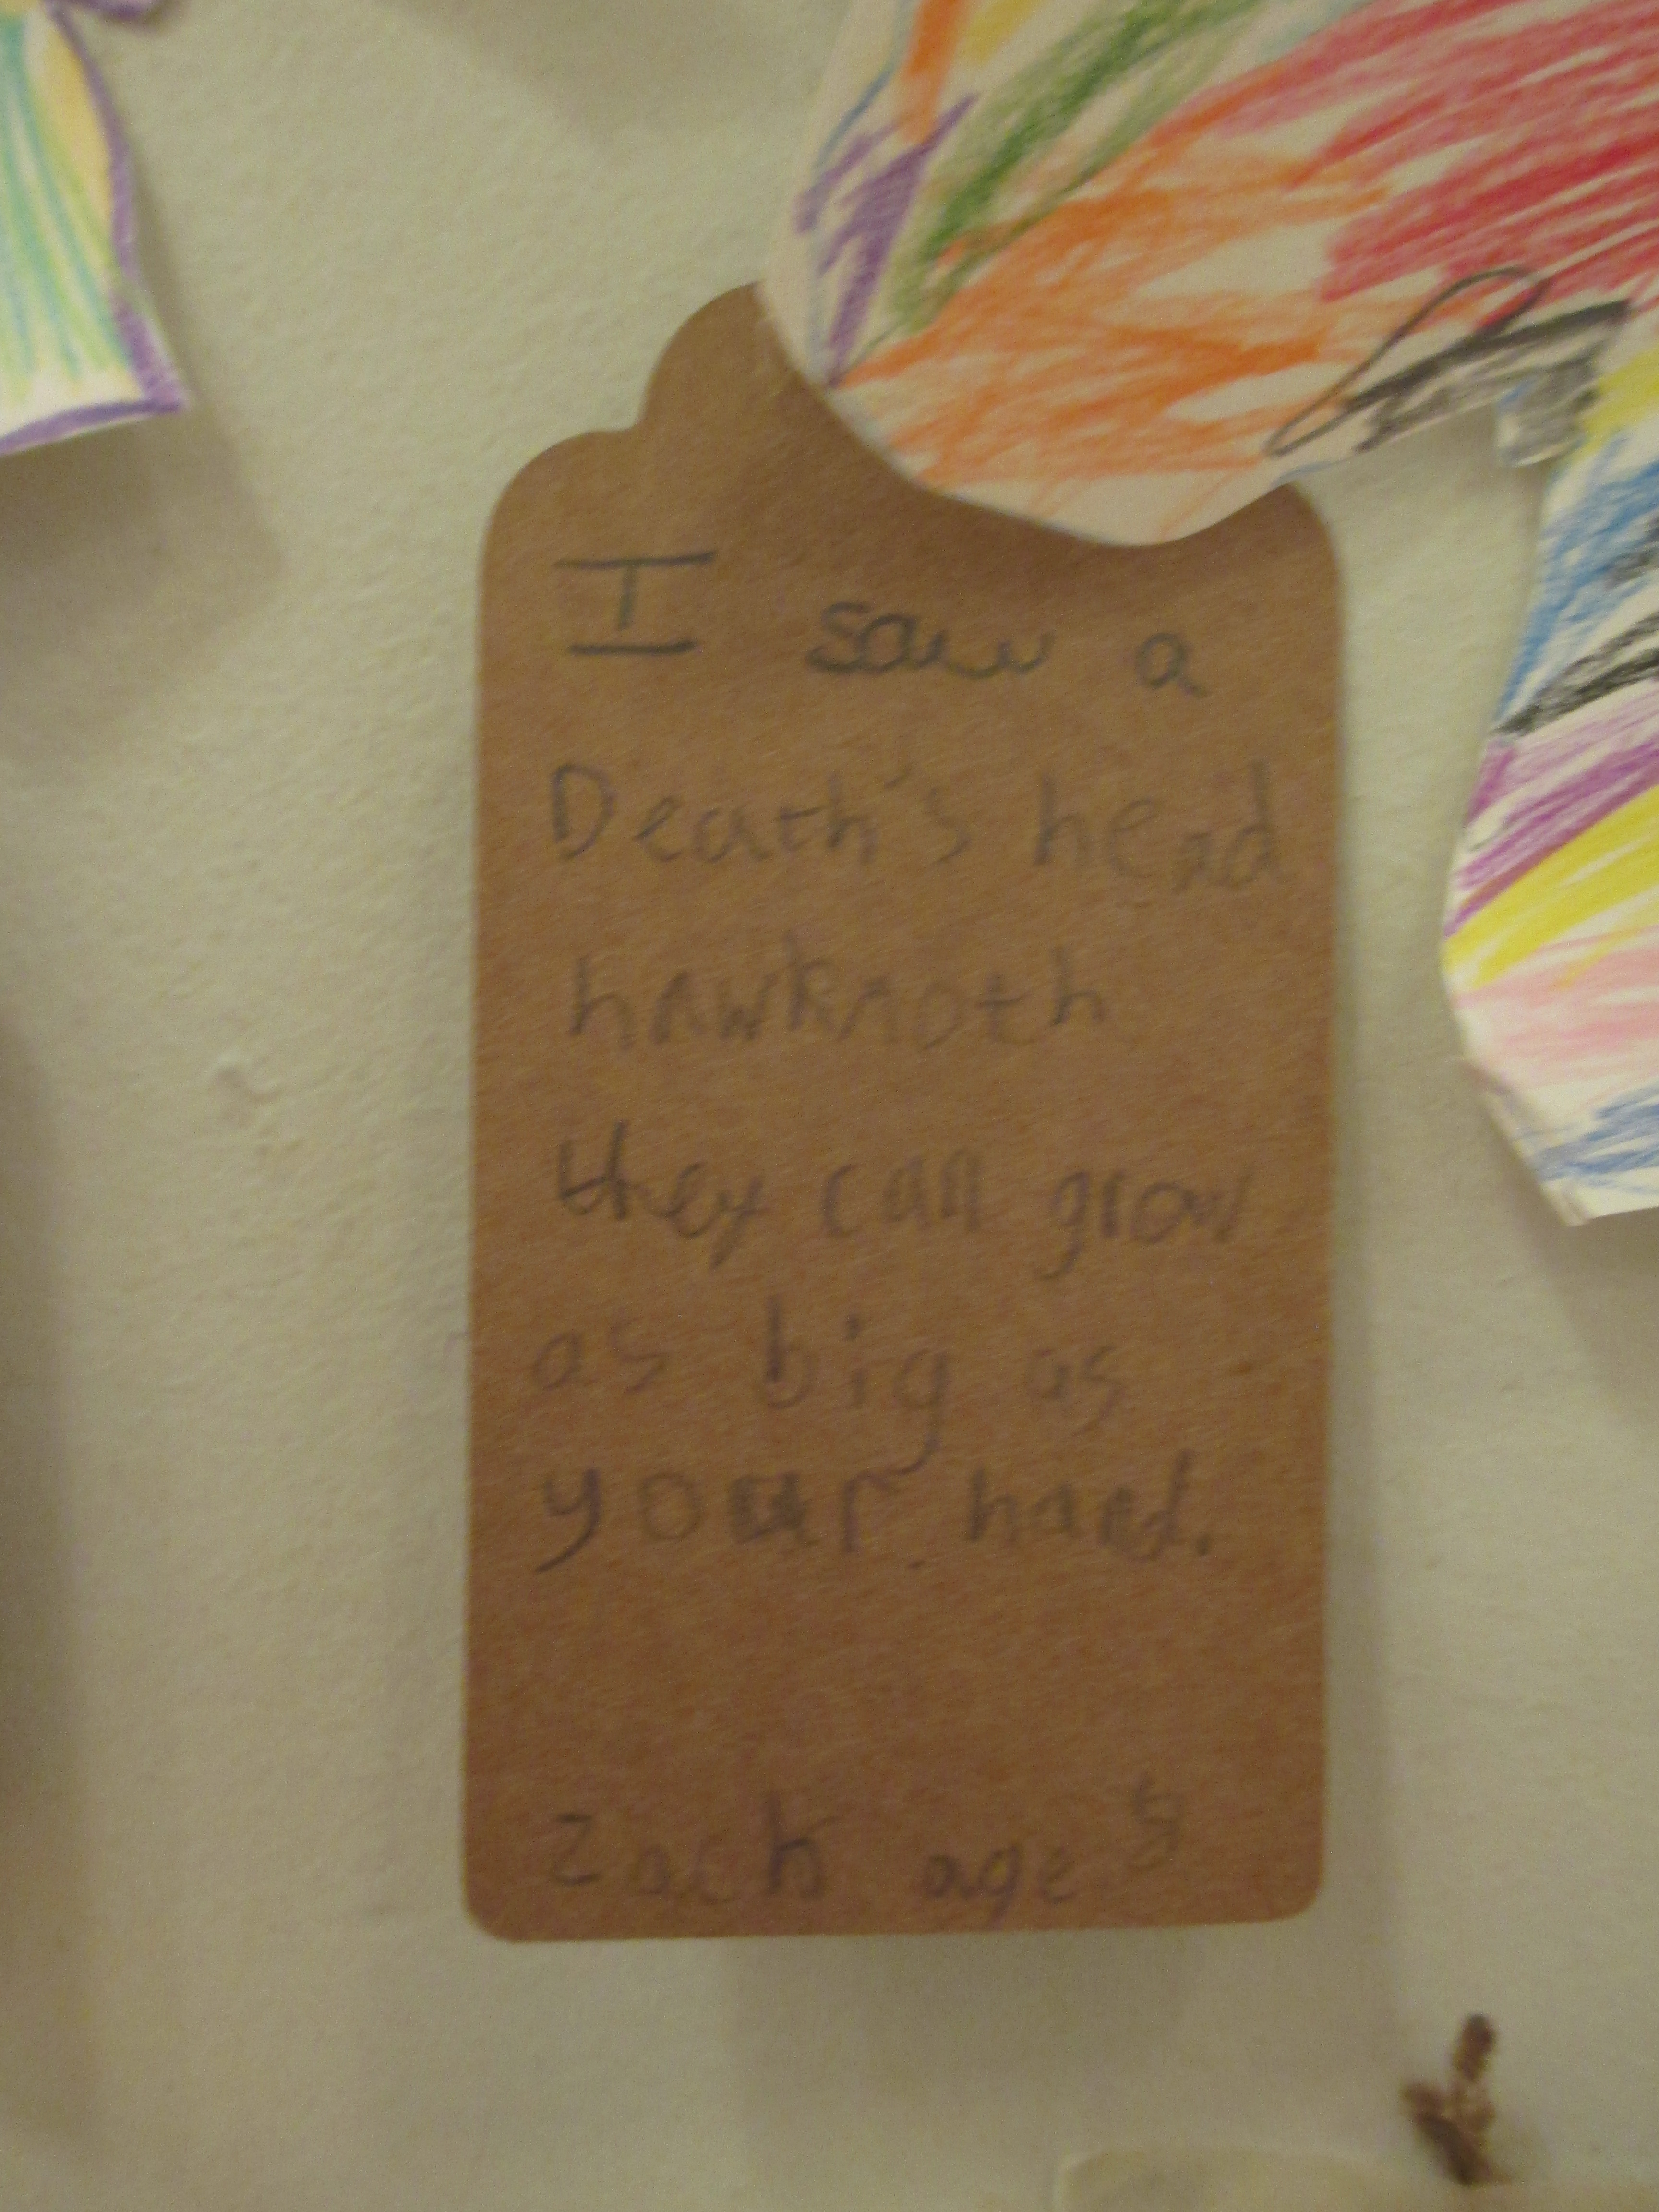 I saw a
Death's head
hawkmoth
they can grow
as big as
your hand.
Zack age 5